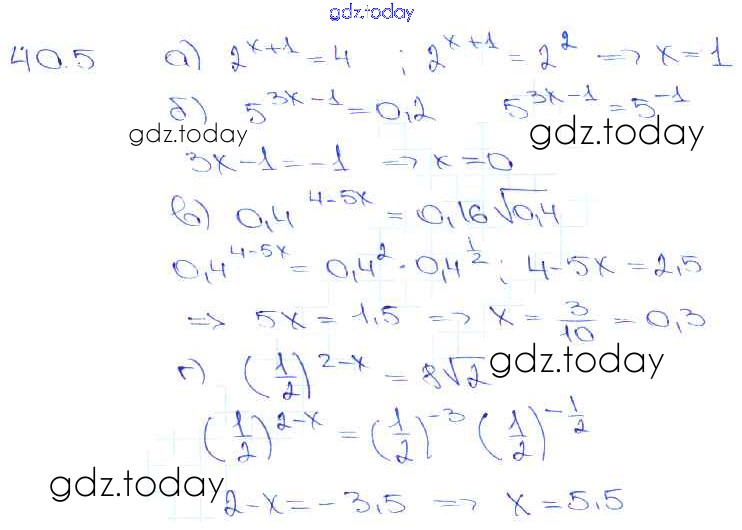 gdz.today
40.5 а) 2^{x+1} = 4 ; 2^{x+1} = 2^2 => x = 1
б) 5^{3x-1} = 0,2 5^{3x-1} = 5^{-1}
gdz.today gdz.today
3x-1 = -1 => x = 0
в) 0,4^{4-5x} = 0,16√0,4
0,4^{4-5x} = 0,4^2 · 0,4^{1/2} ; 4-5x = 2,5
=> 5x = 1,5 => x = 3/10 = 0,3
г) (1/2)^{2-x} = 8√2 gdz.today
(1/2)^{2-x} = (1/2)^{-3} (1/2)^{-1/2}
gdz.today
2-x = -3,5 => x = 5,5